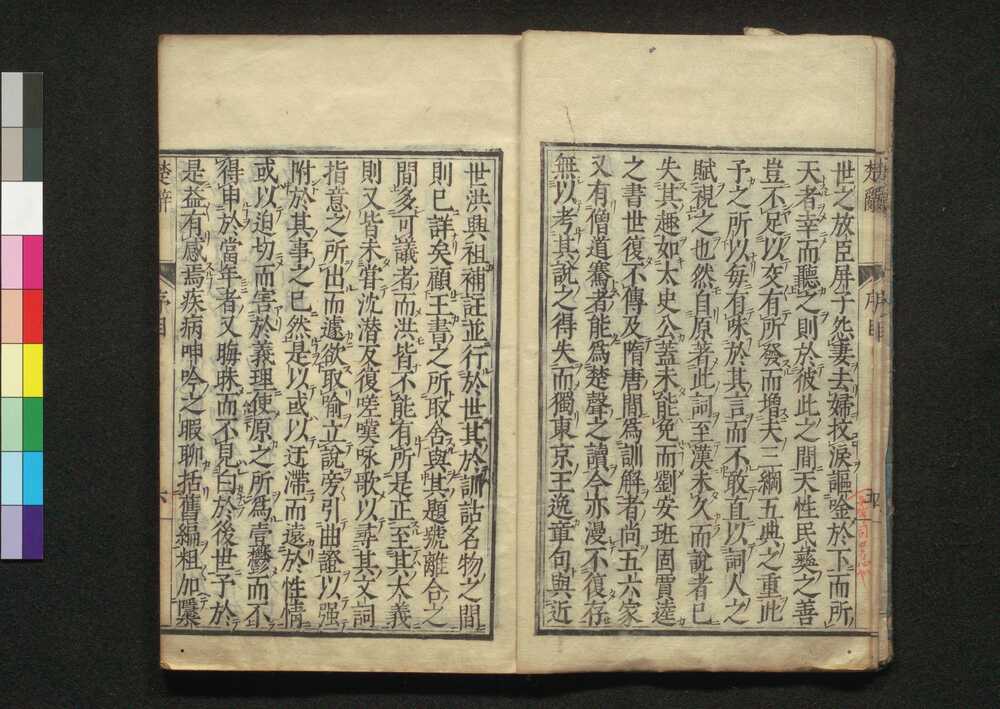 世之放臣屏子怨妻去婦抆淚謳唫於下而所
天者幸而聽之則於彼此之間天性民彝之善
豈不足以交有所發而增夫三綱五典之重此
予之所以每有味於其言而不敢直以詞人之
賦視之也然自原著此詞至漢未久而說者已
失其趣如太史公蓋未能免而劉安班固賈逵
之書世復不傳及隋唐間為訓解者尚五六家
又有僧道騫者能為楚聲之讀今亦漫不復存
無以考其說之得失而獨東京王逸章句與近
楚辭
序目
五
世洪興祖補註並行於世其於訓詁名物之間
則已詳矣顧王書之所取舍與其題號離合之
間多可議者而洪皆不能有所是正至其大義
則又皆未嘗沈潛反復嗟嘆咏歌以尋其文詞
指意之所出而遽欲取喻立說旁引曲證以强
附於其事之已然是以或以迂滯而遠於性情
或以迫切而害於義理使原之所為壹鬱而不
得申於當年者又晦昧而不見白於後世予於
是益有感焉疾病呻吟之暇聊括舊編粗加檃
楚辭
序目
六